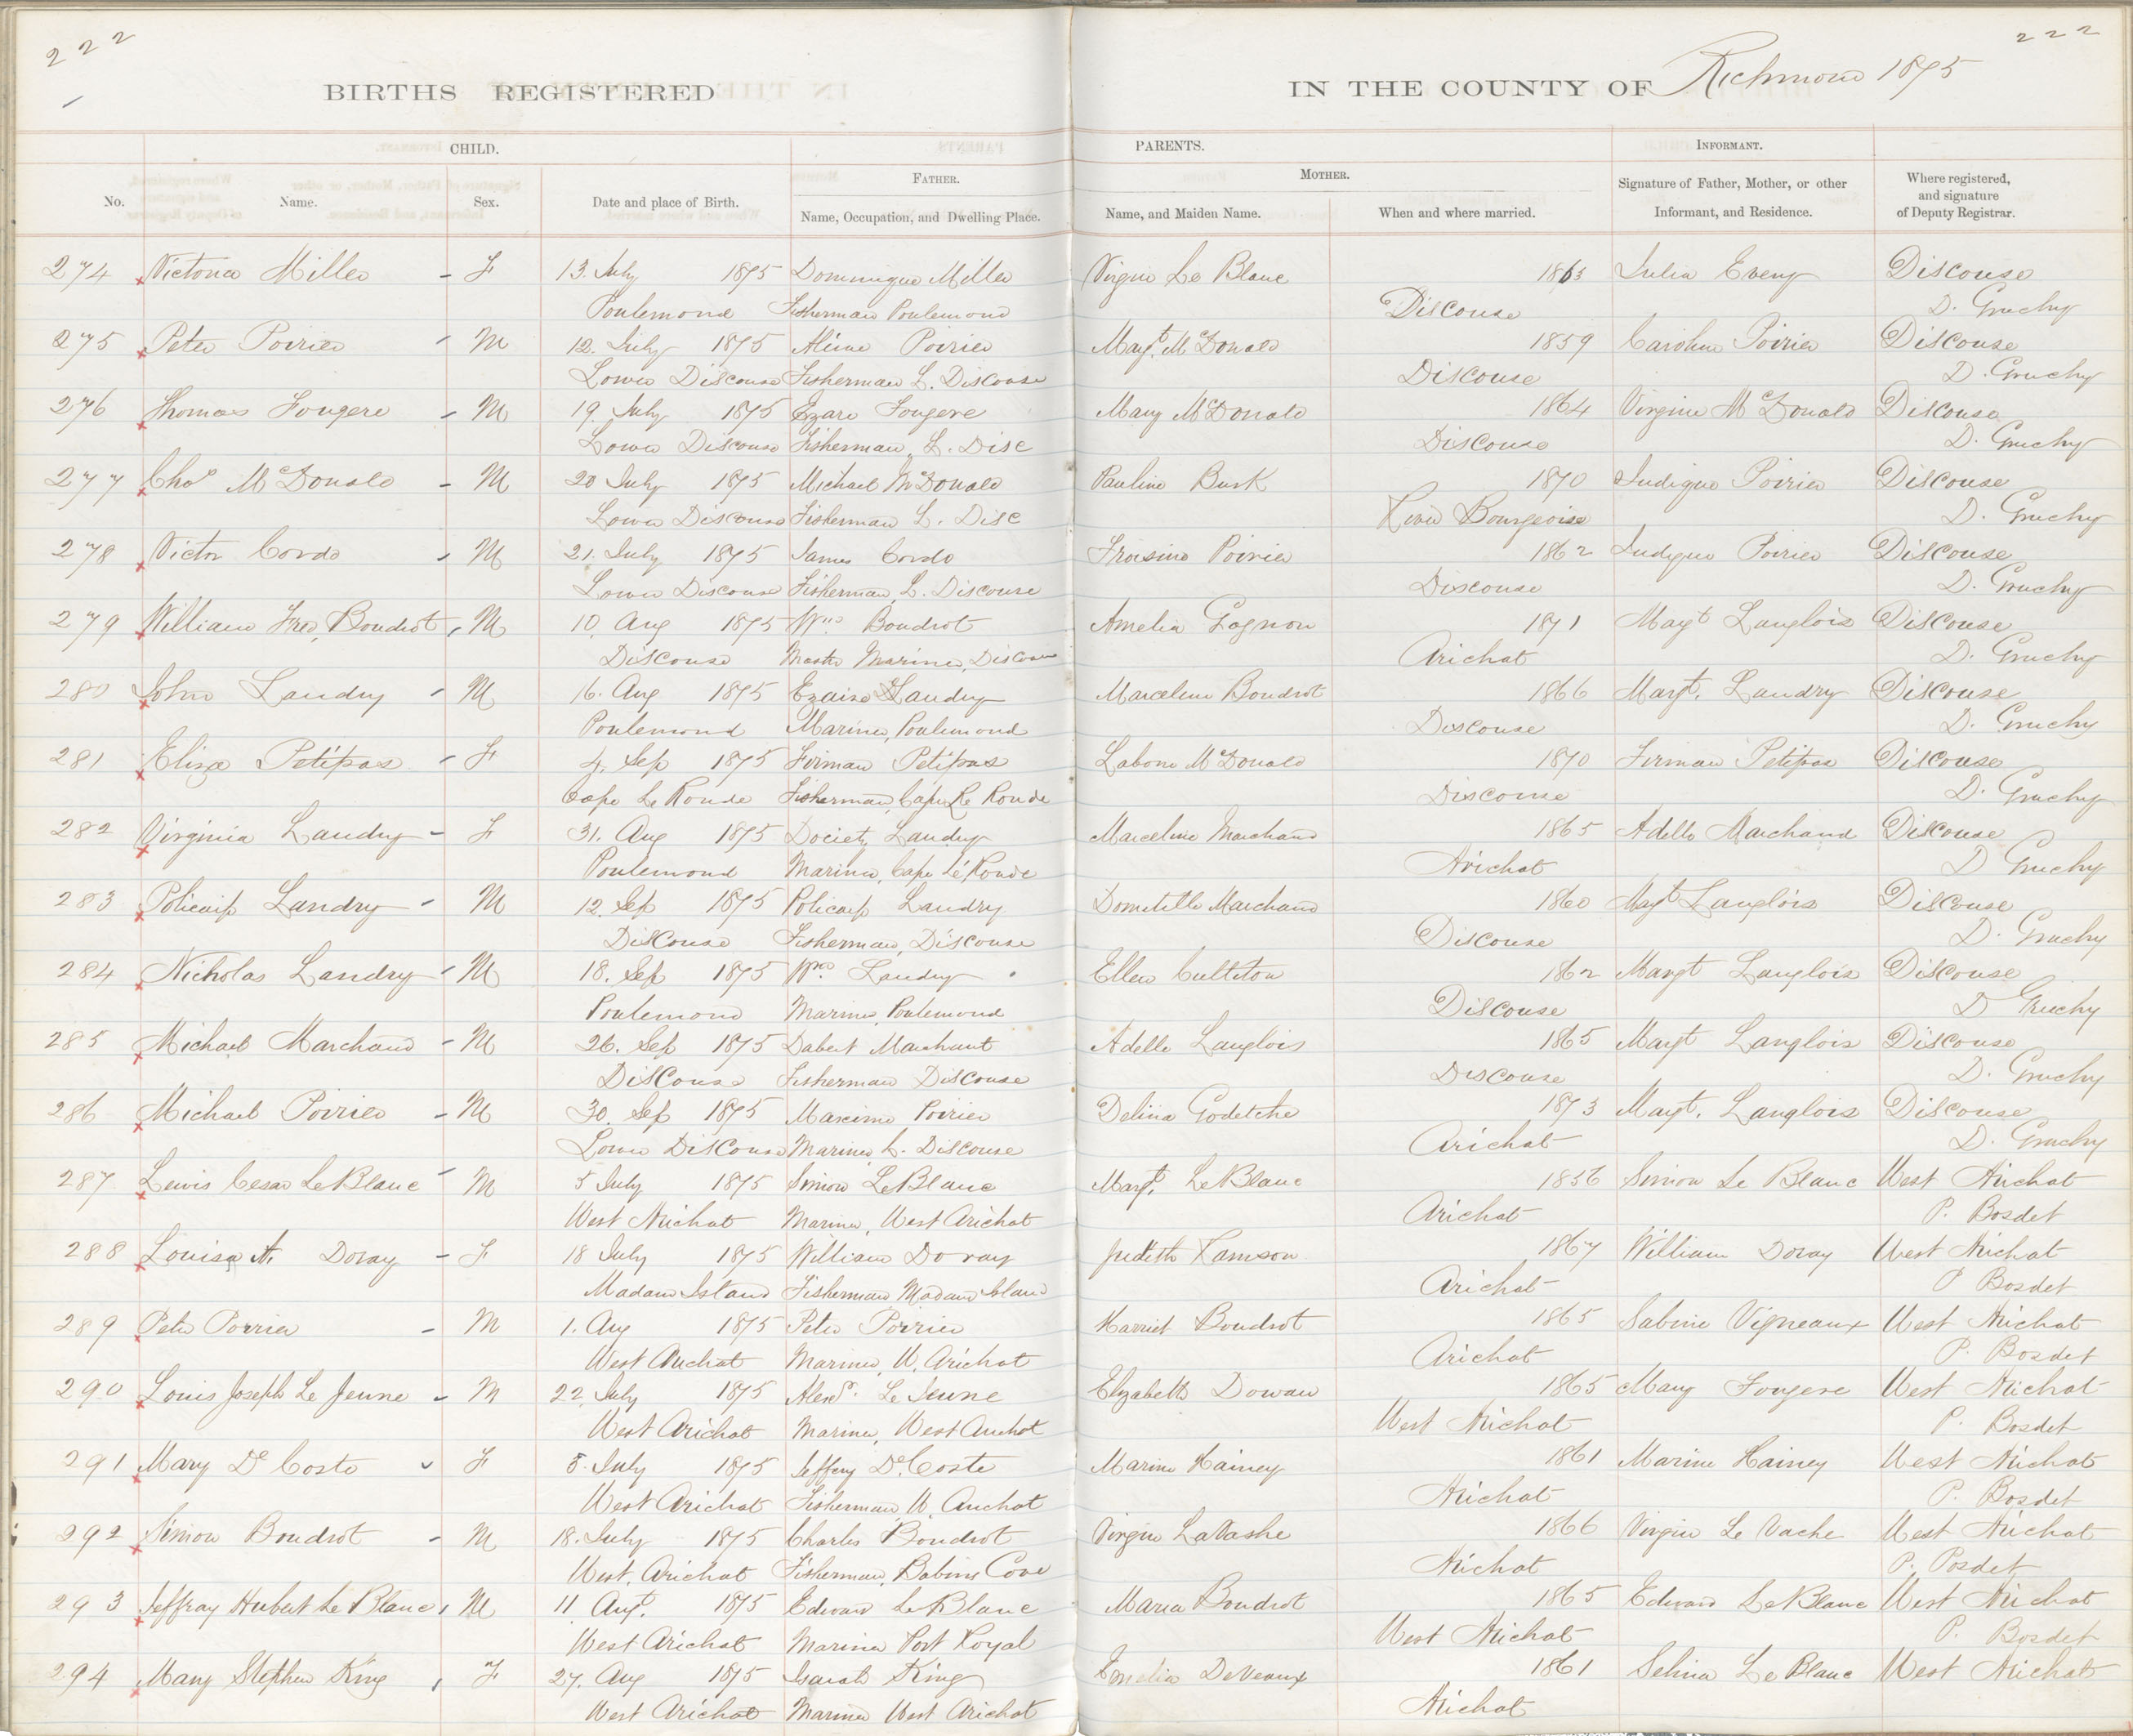 222
222
BIRTHS REGISTERED
IN THE COUNTY OF Richmond 1875
CHILD.
PARENTS.
INFORMANT.
FATHER.
MOTHER.
No.
Name.
Sex.
Date and place of Birth.
Name, Occupation, and Dwelling Place.
Name, and Maiden Name.
When and where married.
Signature of Father, Mother, or other Informant, and Residence.
Where registered, and signature of Deputy Registrar.
274 Victoria Miller - F 13. July 1875 Dominique Miller Virgin Le Blanc 1863 Julia Discouse
Poulemond Fisherman Poulemond Discouse D. Gruchy
275 Peter Poirier - M 12. July 1875 Poirier Magt. McDonald 1859 Caroline Poirier Discouse
Lower Discouse Fisherman L. Discouse Discouse D. Gruchy
276 Thomas Fougere - M 19. July 1875 Fougere Mary McDonald 1864 Virginie McDonald Discouse
Lower Discouse Fisherman, L. Disc Discouse D. Gruchy
277 Chas McDonald - M 20 July 1875 Michael McDonald Pauline Busk 1870 Poirier Discouse
Lower Discouse Fisherman L. Disc River Bourgeoise D. Gruchy
278 Victor Cordo - M 21. July 1875 James Cordo Froisine Poirier 1862 Poirier Discouse
Lower Discouse Fisherman, L. Discouse Discouse D. Gruchy
279 William Fred, Boudrot - M 10 Aug 1875 Wm Boudrot Amelia Gagnon 1871 Magt Langlois Discouse
Discouse Master Mariner, Discouse Arichat D. Gruchy
280 John Landry - M 16. Aug 1875 Landry Marceline Boudrot 1866 Margt. Landry Discouse
Poulemond Mariner, Poulemond Discouse D. Gruchy
281 Eliza Petipas - F 4. Sep 1875 Firman Petipas McDonald 1870 Firman Petipas Discouse
Cape Le Ronde Fisherman, Cape Le Ronde Discouse D. Gruchy
282 Virginia Landry - F 31. Aug 1875 Landry Marceline Marchand 1865 Adelle Marchand Discouse
Poulemond Mariner, Cape Le Ronde Arichat D Gruchy
283 Policarp Landry - M 12. Sep 1875 Policarp Landry Domitille Marchand 1860 Magt Langlois Discouse
Discouse Fisherman, Discouse Discouse D. Gruchy
284 Nicholas Landry - M 18. Sep 1875 Wm. Landry Ellen 1862 Margt Langlois Discouse
Poulemond Mariner, Poulemond Discouse D Gruchy
285 Michael Marchand - M 26. Sep 1875 Marchant Adelle Langlois 1865 Margt Langlois Discouse
Discouse Fisherman Discouse Discouse D. Gruchy
286 Michael Poirier - M 30. Sep 1875 Maxime Poirier Delina Godetche 1873 Margt. Langlois Discouse
Lower Discouse Mariner L. Discouse Arichat D. Gruchy
287 Lewis Cesar LeBlanc - M 5 July 1875 Simon LeBlanc Margt. LeBlanc 1856 Simon Le Blanc West Arichat
West Arichat Mariner, West Arichat Arichat P. Bosdet
288 Louisa A. Doray - F 18 July 1875 William Doray Judith 1867 William Doray West Arichat
Madam Island Fisherman Madam Island Arichat P Bosdet
289 Peter Porrier - M 1. Aug 1875 Peter Porrier Harriet Boudrot 1865 Sabine Vigneaux West Arichat
West Arichat Mariner, W. Arichat Arichat P. Bosdet
290 Louis Joseph Le Jeune - M 22. July 1875 Alexr. Le Jeune Elizabeth 1865 Mary Fougere West Arichat
West Arichat Mariner, West Arichat West Arichat P. Bosdet
291 Mary De Coste F 5. July 1875 Jeffery De Coste Marine Hainey 1861 Marine Hainey West Arichat
West Arichat Fisherman, W. Arichat Arichat P. Bosdet
292 Simon Boudrot - M 18. July 1875 Charles Boudrot Virgin LaVashe 1866 Virgin Le Vache West Arichat
West, Arichat Fisherman, Babins Cove Arichat P. Bosdet
293 Jeffray Hubert Le Blanc M 11 Augt. 1875 Edward LeBlanc Maria Boudrot 1865 Edward LeBlanc West Arichat
West Arichat Mariner Port Royal West Arichat P. Bosdet
294 Mary Stephen King F 27. Aug 1875 King Emelia DeVeaux 1861 Selina Le Blanc West Arichat
West Arichat Mariner West Arichat Arichat